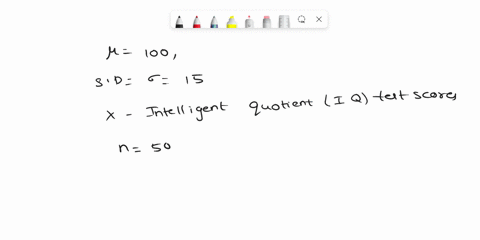 μ = 100,
S.D = σ = 15
X - Intelligent Quotient (IQ) test scores
n = 50